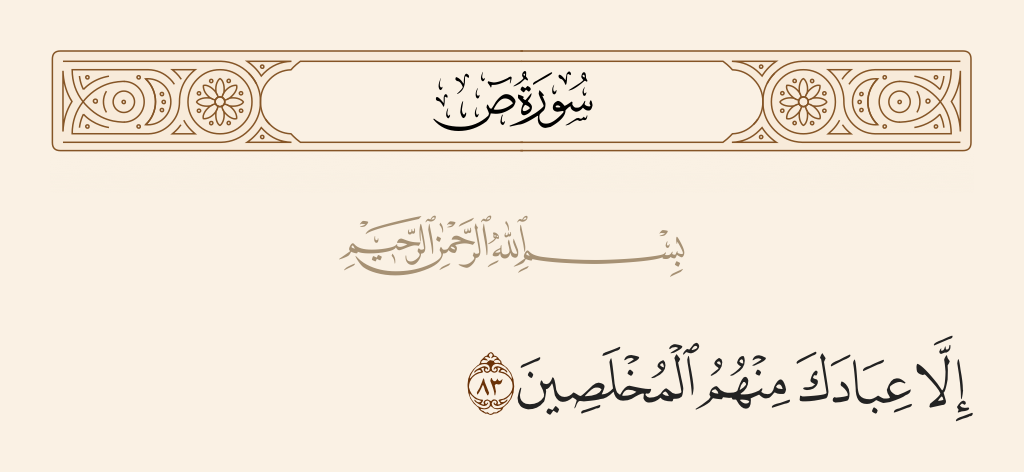 سُورَةُ صٓ
بِسْمِ ٱللَّهِ ٱلرَّحْمَٰنِ ٱلرَّحِيمِ
إِلَّا عِبَادَكَ مِنْهُمُ ٱلْمُخْلَصِينَ ٨٣